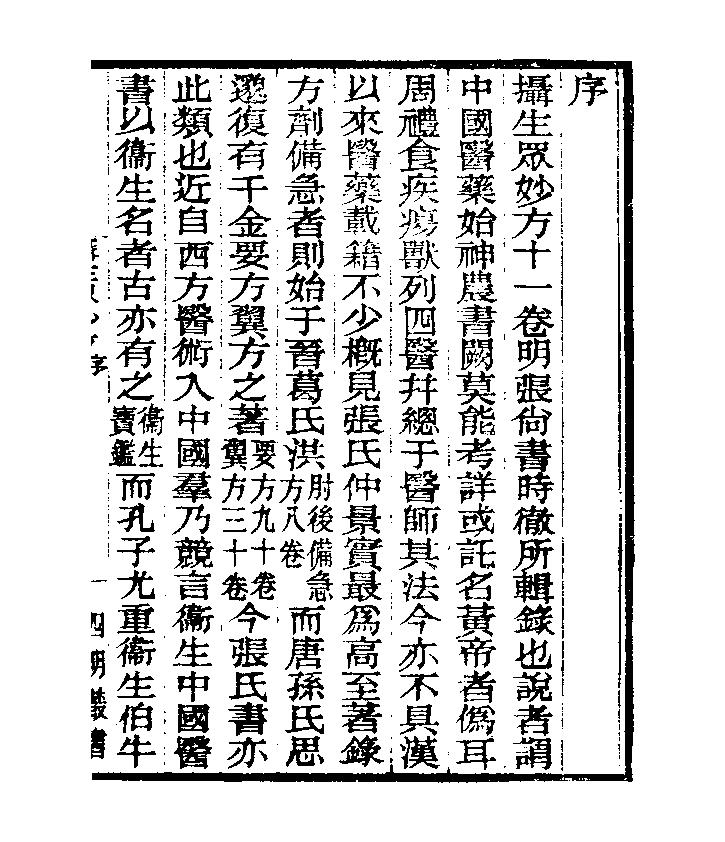 序
攝生眾妙方十一卷明張尙書時徹所輯錄也說者謂
中國醫藥始神農書闕莫能考詳或託名黃帝者僞耳
周禮食疾瘍獸列四醫幷總于醫師其法今亦不具漢
以來醫藥載籍不少槪見張氏仲景實最爲高至著錄
方劑備急者則始于晉葛氏洪肘後備急方八卷而唐孫氏思
邈復有千金要方翼方之著要方九十卷翼方三十卷今張氏書亦
此類也近自西方醫術入中國羣乃競言衞生中國醫
書以衞生名者古亦有之衞生寶鑑而孔子尤重衞生伯牛
序
一 四明叢書